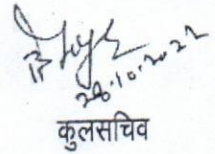 28.10.2022
कुलसचिव